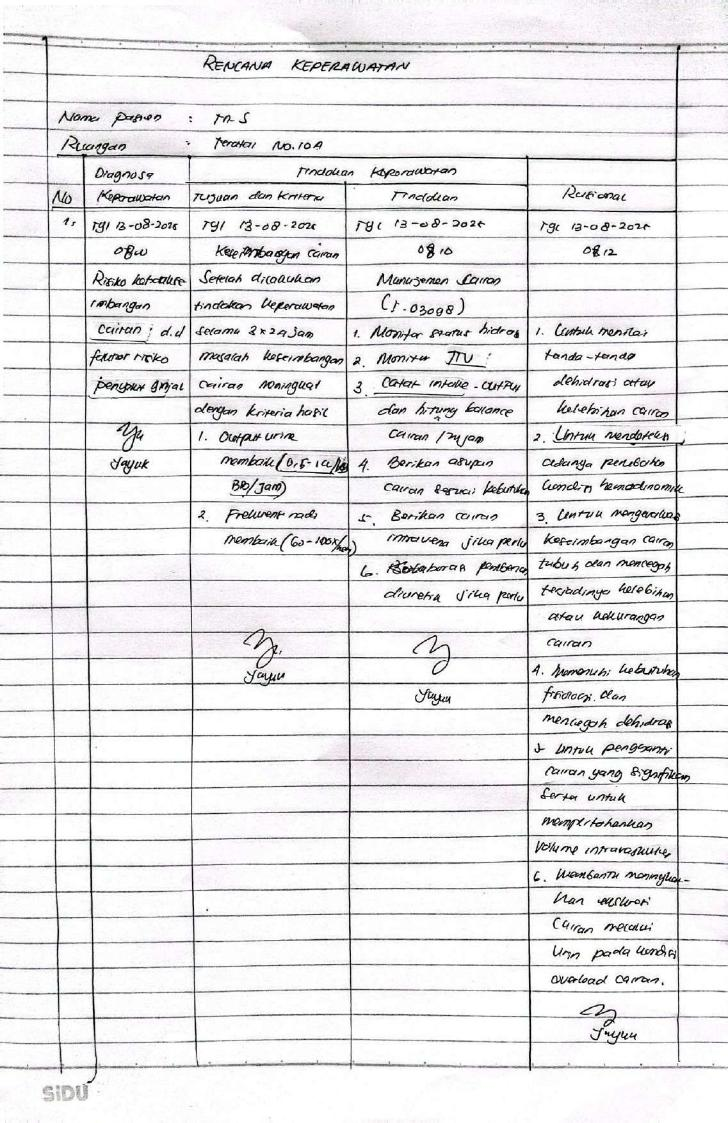 RENCANA KEPERAWATAN
Nama pasien : Tn. S
Ruangan : Teratai No. 10A
No
Diagnosa
Keperawatan
Tindakan Keperawatan
Tujuan dan Kriteria
Tindakan
Rasional
1.
Tgl 13-08-2025
Risiko ketidakse
imbangan
cairan ; d.d
faktor risiko
penyakit ginjal
Yayuk
Tgl 13-08-2025
Keseimbangan cairan
Setelah dilakukan
tindakan keperawatan
selama 3x24 jam
masalah keseimbangan
cairan meningkat
dengan kriteria hasil
1. Output urine
membaik (0,5-1cc/kg
BB/jam)
2. Frekuensi nadi
membaik (60-100x/men)
Yayuk
Tgl 13-08-2025
0810
Manajemen Cairan
(I.03098)
1. Monitor status hidras
2. Monitor TTV ;
3. Catat intake-output
dan hitung balance
cairan /24 jam
4. Berikan asupan
cairan sesuai kebutuhan
5. Berikan cairan
intravena jika perlu
6. Kolaborasi pemberian
diuretik jika perlu
Yayuk
Tgl 13-08-2025
0812
1. Untuk menilai
tanda-tanda
dehidrasi atau
kelebihan cairan
2. Untuk mendeteksi
adanya perubahan
kondisi hemodinamik
3. Untuk mengevaluasi
keseimbangan cairan
tubuh dan mencegah
terjadinya kelebihan
atau kekurangan
cairan
4. Memenuhi kebutuhan
fisiologi dan
mencegah dehidrasi
5 Untuk pengganti
cairan yang signifikan
serta untuk
mempertahankan
volume intravaskuler
6. Membantu meningkat-
kan ekskresi
cairan melalui
urin pada kondisi
overload cairan.
Yayuk
SiDU